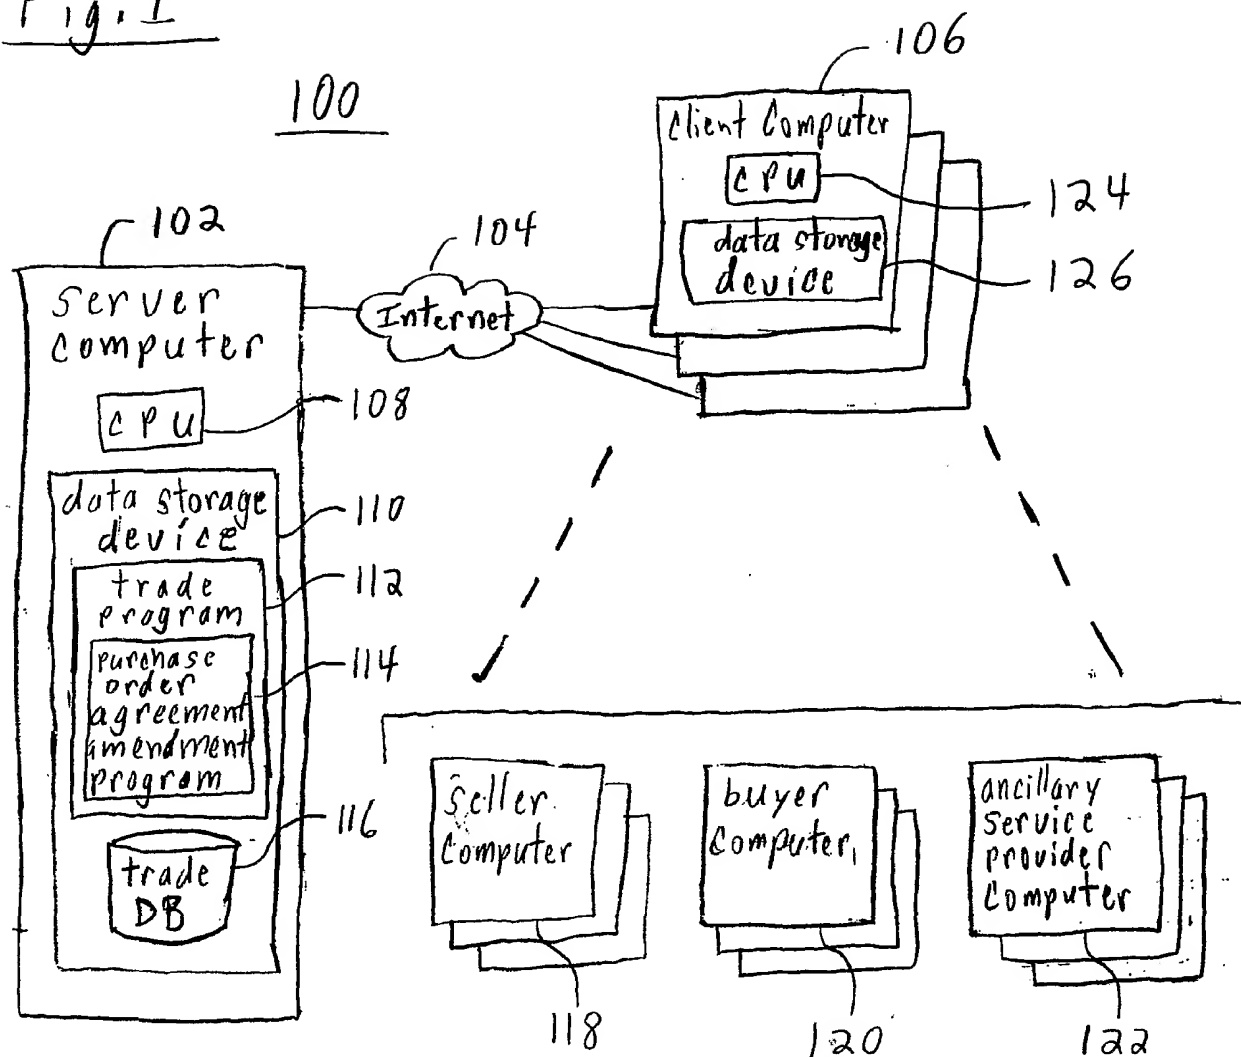 Fig. 1
100
106
Client Computer
CPU
124
data storage
device
126
102
104
Server
Computer
Internet
CPU
108
data storage
device
110
trade
program
112
purchase
order
agreement
amendment
program
114
trade
DB
116
Seller
Computer
118
buyer
Computer
120
ancillary
service
provider
Computer
122